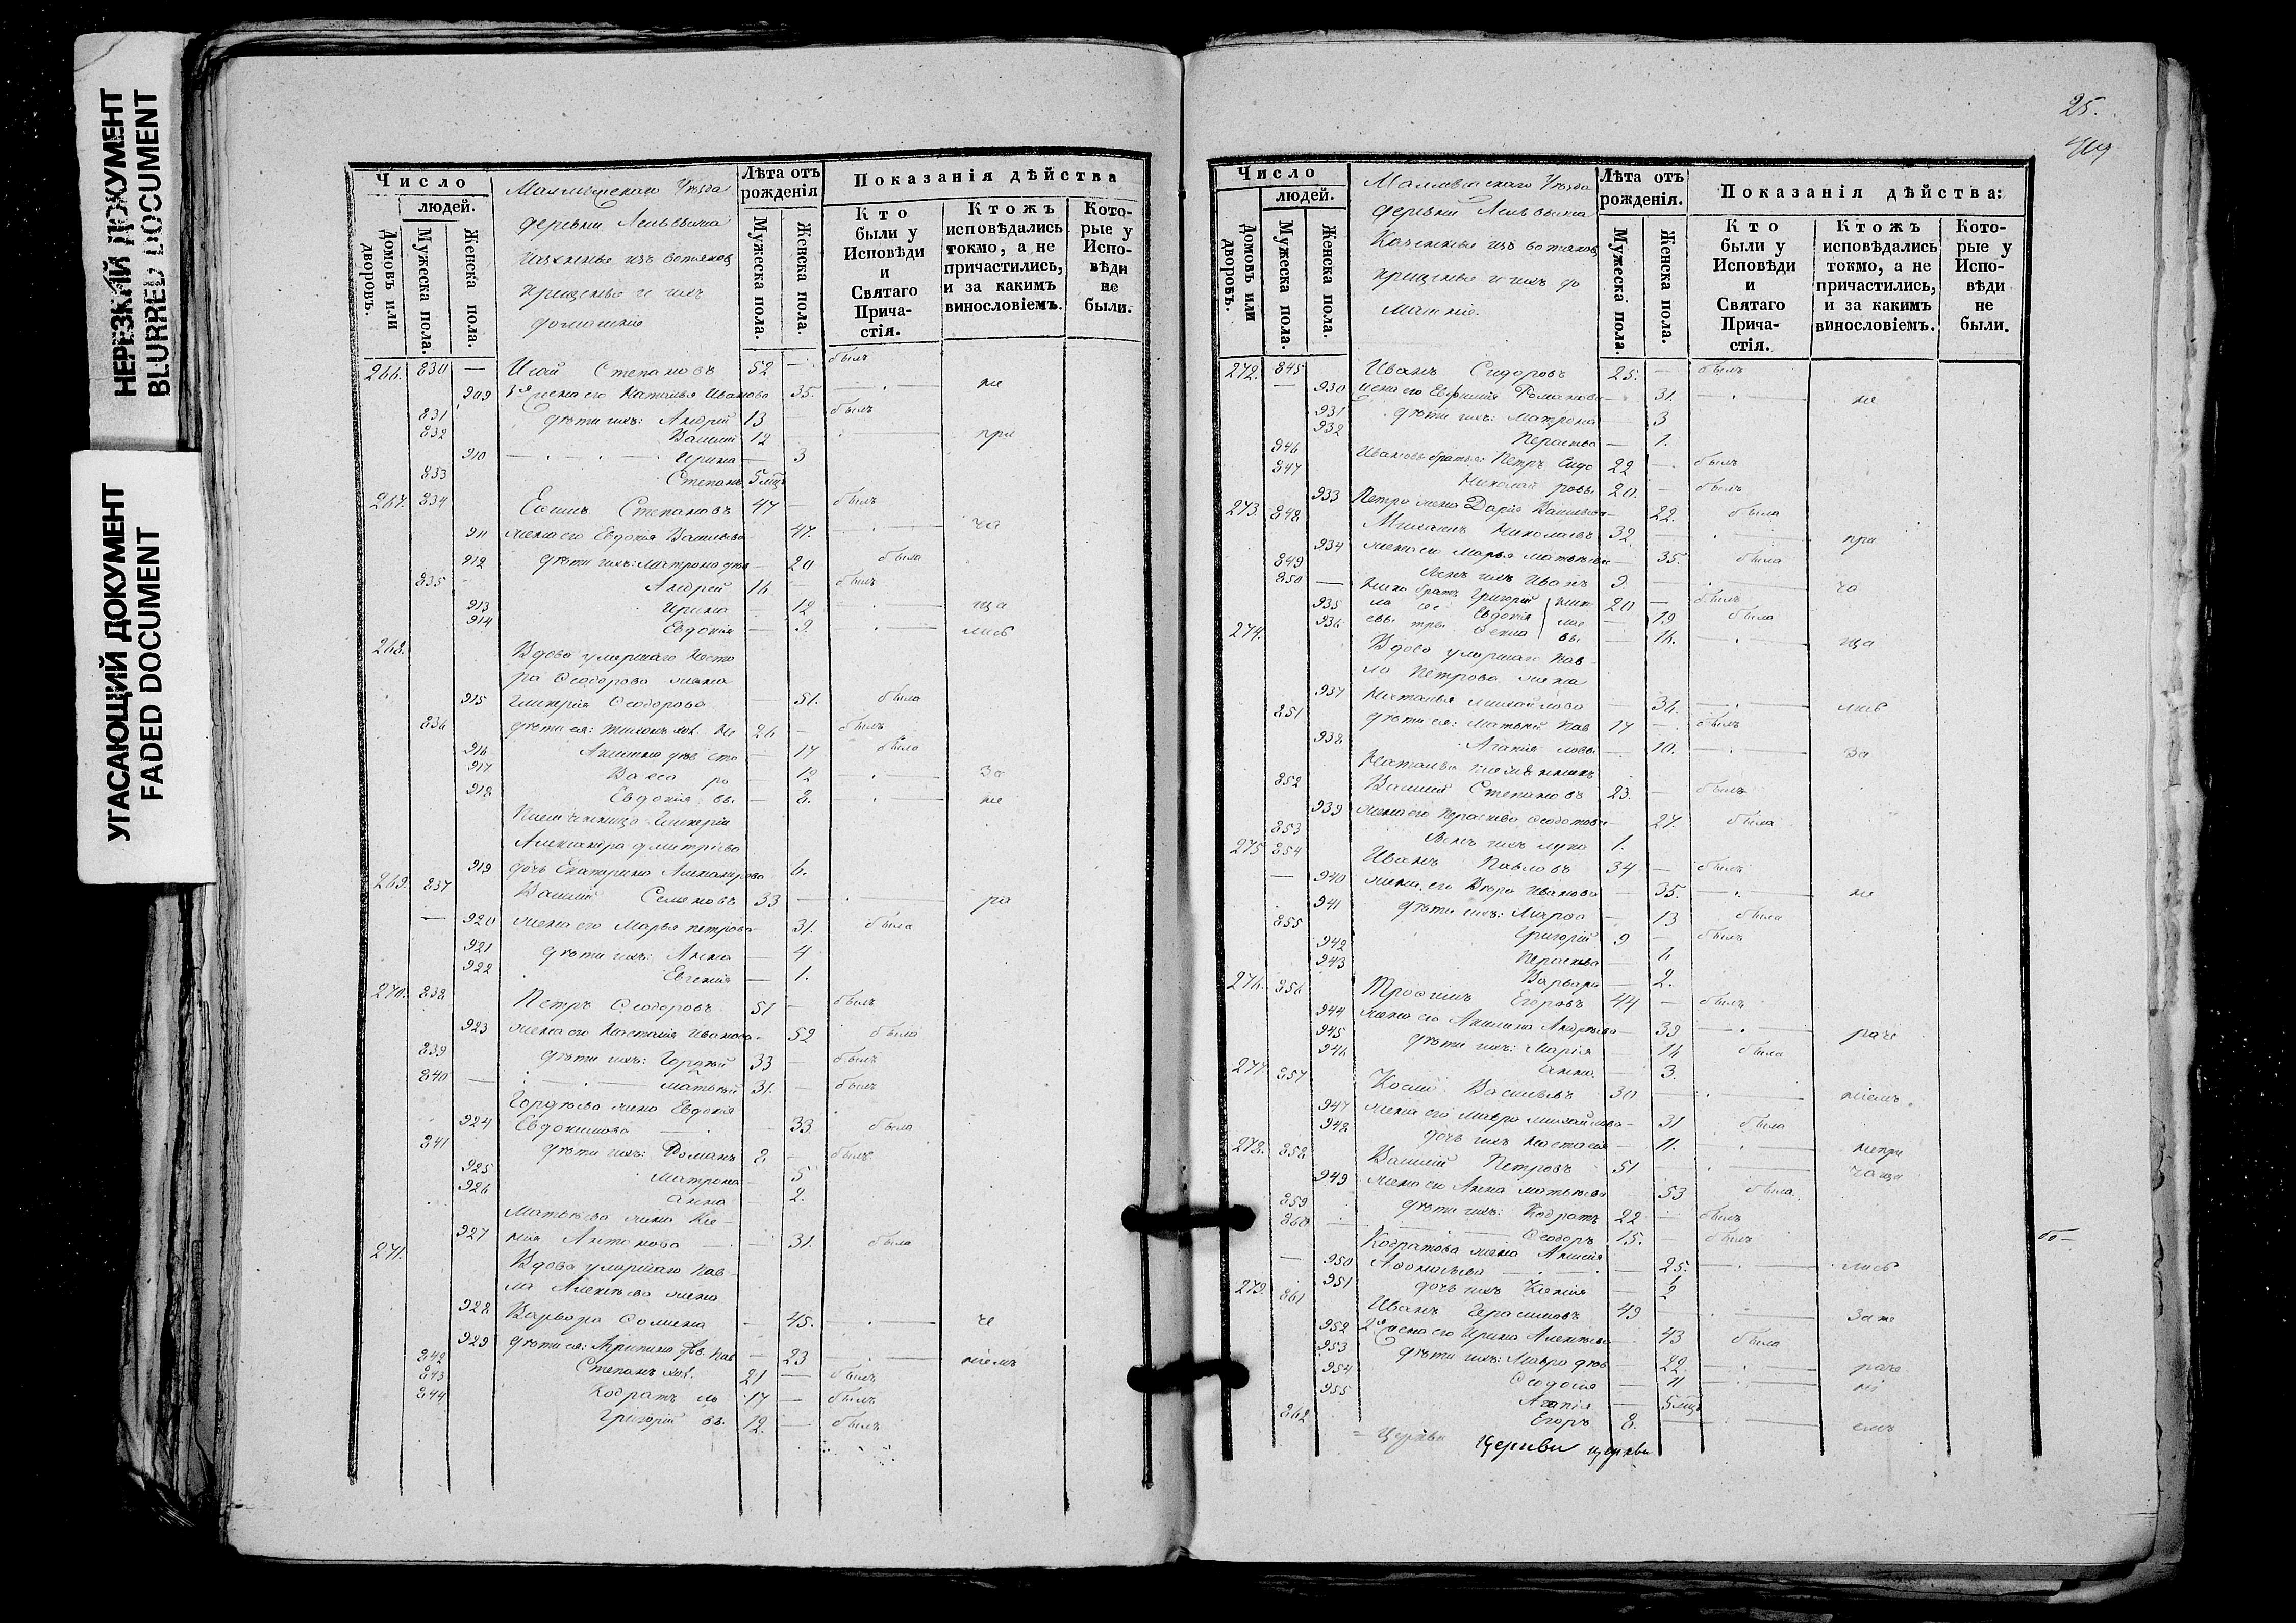 НЕРЕЗКИЙ ДОКУМЕНТ
BLURRED DOCUMENT
УГАСАЮЩИЙ ДОКУМЕНТ
FADED DOCUMENT
Число
людей.
Домовъ или дворовъ.
Мужеска пола.
Женска пола.
Малмыжскаго Уѣзда
деревни
изъ вотяковъ
крещеные и ихъ
домашніе
Лѣта отъ рожденія
Мужеска пола.
Женска пола.
Показанія дѣйства
Кто были у Исповѣди и Святаго Прича-стія.
Ктожъ исповѣдались токмо, а не причастились, и за какимъ винословіемъ.
Кото-рые у Испо-вѣди не были.
266. 830 — Исай Степановъ 52 — былъ
909 2я жена его Наталья Иванова 35. — не
831 дѣти ихъ: Андрей 13 былъ
832 Василій 12 — при
910 Ирина — 3
833 Степанъ 5 мцъ
267. 834 Степановъ 47 — былъ
911 жена его Евдокія Васильева 47. — ча
912 дѣти ихъ: Матрона дѣв — 20 была
835 Андрей 16 — былъ
913 Ирина — 12 — ща
914 Евдокія — 9. — лись
268. Вдова умершаго Несто
ра Ѳеодорова жена
915 Гликерія Ѳеодорова — 51. была
836 дѣти ея: Тихонъ хол. Не 26 — былъ
916 Акилина дѣв сто — 17 была
917 Васса ро — 12 — за
918 Евдокія вы — 8. — не
Племянница Гликеріи
Александра Дмитріева
919 дочь Екатерина Александрова 6.
269. 837 Василій Семеновъ 33 — ра
— 920 жена его Марья Петрова — 31. была
921 дѣти ихъ: Анна — 4
922 Евгенія — 1.
270. 838 Петръ Ѳеодоровъ 51 — былъ
923 жена его Настасія Иванова — 52 была
839 дѣти ихъ: Гордѣй 33 — былъ
840 — Матвѣй 31. — былъ
Гордѣева жена Евдокія
924 Евдокимова — 33. была
841 дѣти ихъ: Романъ 8. — былъ
925 Матрона — 5
926 Анна — 2.
Матвѣева жена Ксе-
927 нія Антонова — 31. была
271. Вдова умершаго Пав-
ла Алексѣева жена
928 Варвара Ѳомина — 45. — че
929 дѣти ея: Агрипина дѣв. Пав — 23 — ніемъ
842 Степанъ хол. 21 — былъ
843 Кодратъ ло 17 — былъ
844 Григорій вы. 12. — былъ
25.
Число
людей.
Домовъ или дворовъ.
Мужеска пола.
Женска пола.
Малмыжскаго Уѣзда
деревни
изъ вотяковъ
крещеные и ихъ до
машніе.
Лѣта отъ рожденія.
Мужескі пола.
Женска пола.
Показанія дѣйства:
Кто были у Исповѣди и Святаго Прича-стія.
Ктожъ исповѣдались токмо, а не причастились, и за какимъ винословіемъ.
Кото-рые у Испо-вѣди не были.
272. 845 Иванъ Сидоровъ 25. — былъ
— 930 жена его Евфимія Романова — 31. — не
931 дѣти ихъ: Матрона — 3
932 Параскева — 1.
846 Ивановы братья: Петръ Сидо 22 — былъ
847 Николай ровы 20. — былъ
933 Петра жена Дарія Васильева — 22. была
273. 848 Михаилъ Николаевъ 32 — при
934 жена его Марья Матвѣева — 35. была
849 сынъ ихъ Иванъ 9 — ча
850 — братъ Григорій 20 — былъ
935 Евдокія — 19 была
936 сес тры 16. — ща
274. Вдова умершаго Пав-
ла Петрова жена
937 Наталья Михайлова — 36. — лись
851 дѣти ея: Матвѣй Пав 17 — былъ
938 Агапія ловы — 10. — за
Натальи племянникъ
852 Василій Степановъ 23. — былъ
939 жена его Параскева Ѳедотова — 27. была
853 сынъ ихъ Лука 1.
275. 854 Иванъ Павловъ 34 — былъ
— 940 жена его Вѣра Иванова — 35. — не
941 дѣти ихъ: Марѳа — 13 была
855 Григорій 9 — былъ
942 Параскева — 6
943 Варвара — 2.
276. 856 Трофимъ Егоровъ 44 — былъ
944 жена его Акилина Андреева — 39 — раче
945 дѣти ихъ: Марія — 16 была
946 Анна. — 3.
277. 857 Василь 30 — ніемъ.
947 жена его Мавра Михайлова — 31 была
948 дочь ихъ Настасія — 11. — непри
278. 858 Василій Петровъ 51 — чащи
949 жена его Анна Матвѣева — 53 была.
859 дѣти ихъ: Кодратъ 22 — былъ
860 — Ѳеодоръ 15. — былъ
Кодратова жена
950 — 25. — лись
951 дочь ихъ Ксенія
279. 861 Иванъ Герасимовъ 49 — за не
952 2я жена его Ирина Алексѣева — 43 была
953 дѣти ихъ: Мавра дѣв — 22. — раче
954 Ѳедосія — 11 — ні
955 Агапія — 5 мцъ
862 Егоръ 8. — емъ
Церкви Церкви церкви